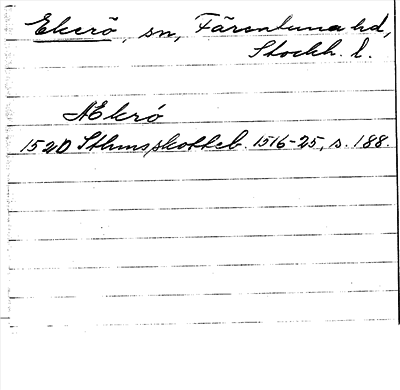 Ekerö, sn, Färentuna hd,
Stockh. l.
Ækrö
1520 Sthms skotteb. 1516-25, s. 188.